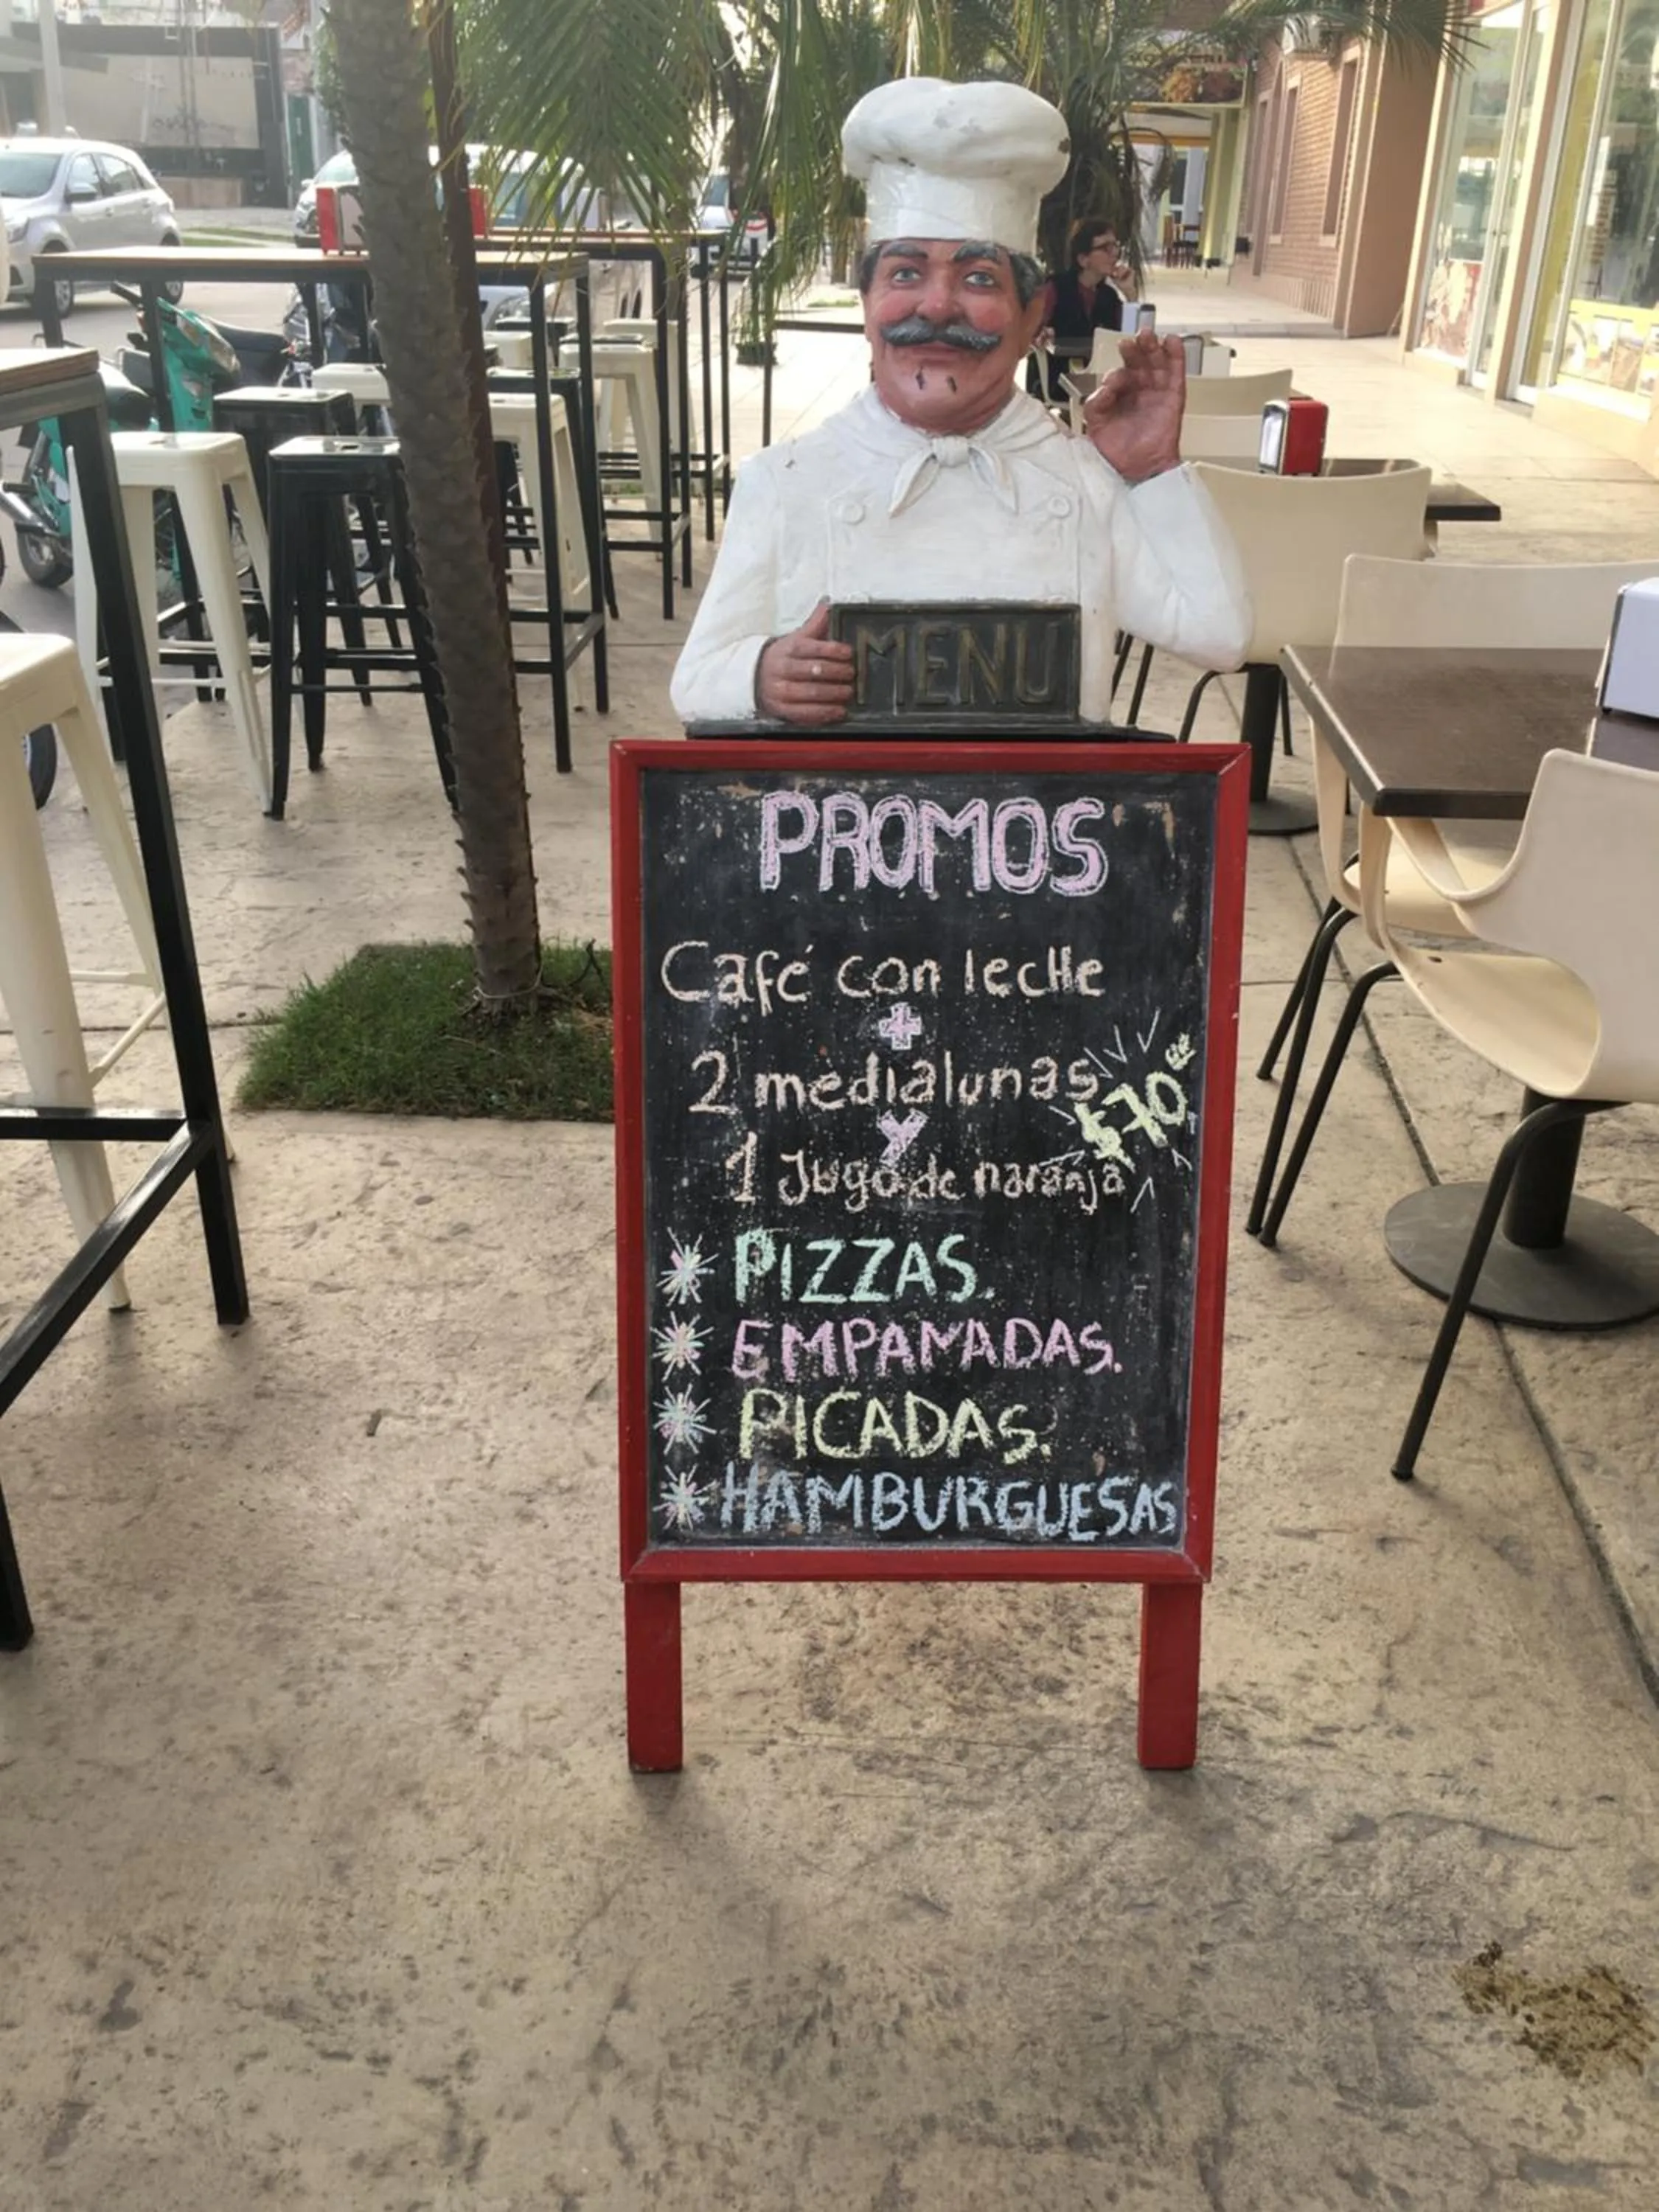 MENU
PROMOS
Café con lecHe
+
2 medialunas
$70.00
y
1 Jugo de naranja
* PIZZAS.
* EMPANADAS.
* PICADAS.
* HAMBURGUESAS